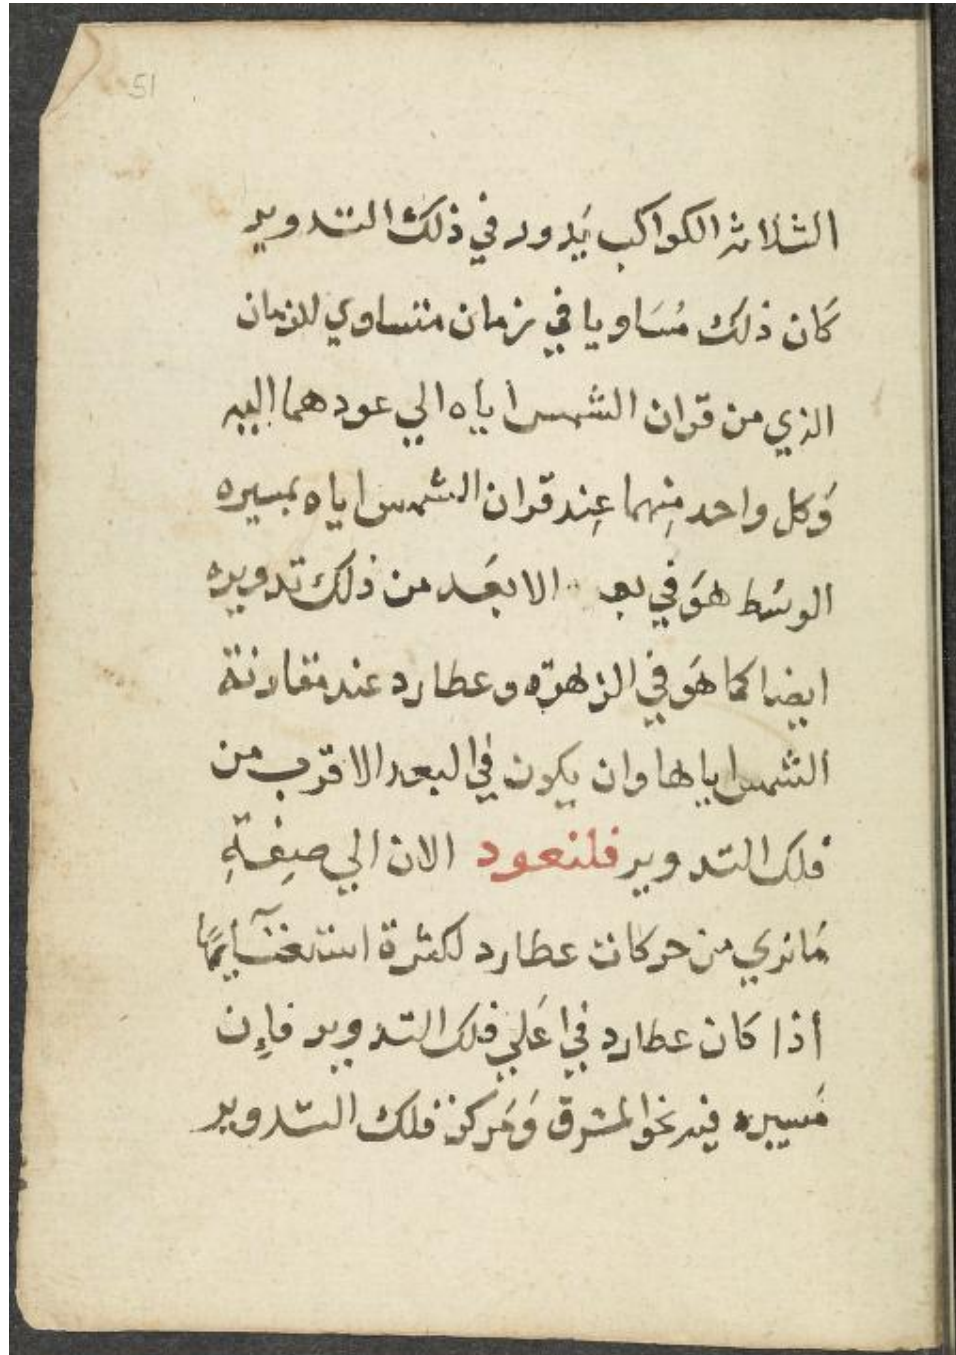 51
الثلاثه الكواكب يَدور في ذلك التدوير
كَان ذلك مُسَاويا في زمان متساوي للزمان
الذي من قران الشمس اياه الي عودهما اليه
وَكل واحد مِنهما عِند قران الشمس اياه بمسيره
الوسُط هوَ في بعد الابعَد من ذلك تدويره
ايضا كما هوَ في الزهره وعطارد عند مقارنة
الشمس اياها وان يكون في البعد الاقرب من
فلك التدوير فلنعود الان الي صِفةِ
مَا نري من حركات عطارد لكثرة
أذا كان عطارد في اعَلي فلك التدوير فاِن
مَسيره فيه نحو المشرق وَمَركز فلك التدوير